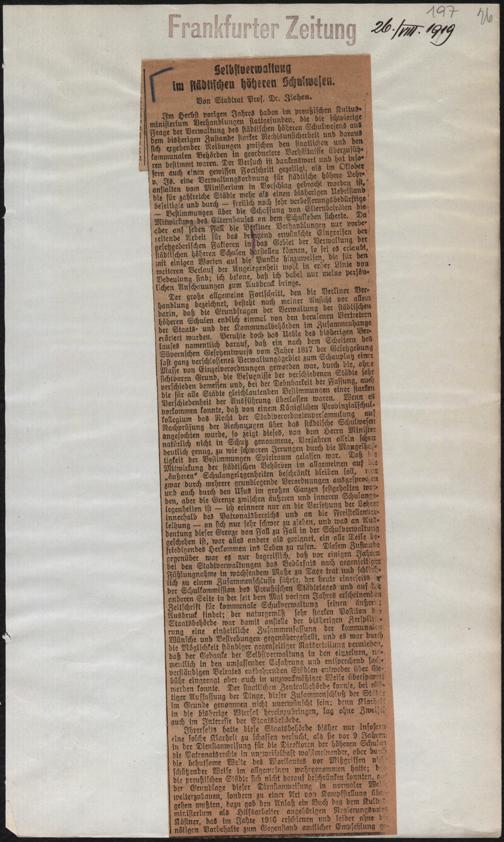 197
76
Frankfurter Zeitung
26./VIII. 1919
Selbstverwaltung
im städtischen höheren Schulwesen.
Von Stadtrat Prof. Dr. Ziehen.
Im Herbst vorigen Jahres haben im preußischen Kultus-
ministerium Verhandlungen stattgefunden, die die schwierige
Frage der Verwaltung des städtischen höheren Schulwesens aus
dem bisherigen Zustande starker Rechtsunsicherheit und daraus
sich ergebender Reibungen zwischen den staatlichen und den
kommunalen Behörden in geordnetere Verhältnisse überzufüh-
ren bestimmt waren. Der Versuch ist dankenswert und hat inso-
fern auch einen gewissen Fortschritt gezeitigt, als im Oktober
v. Js. eine Verwaltungsordnung für städtische höhere Lehr-
anstalten vom Ministerium in Vorschlag gebracht worden ist,
die für zahlreiche Städte mehr als einen bisherigen Uebelstand
beseitigte und durch — freilich noch sehr verbesserungsbedürftige
— Bestimmungen über die Schaffung von Elternbeiräten die
Mitwirkung des Elternhauses an dem Schulleben sicherte. Da
aber auf jeden Fall die Berliner Verhandlungen nur vorbe-
reitende Arbeit für das dringend erwünschte Eingreifen der
gesetzgeberischen Faktoren in das Gebiet der Verwaltung der
städtischen höheren Schulen darstellen können, so sei es erlaubt,
mit einigen Worten auf die Punkte hinzuweisen, die für den
weiteren Verlauf der Angelegenheit wohl in erster Linie von
Bedeutung sind; ich betone, daß ich dabei nur meine persön-
lichen Anschauungen zum Ausdruck bringe.
Der große allgemeine Fortschritt, den die Berliner Ver-
handlung bezeichnet, besteht nach meiner Ansicht vor allem
darin, daß die Grundfragen der Verwaltung der städtischen
höheren Schulen endlich einmal von den berufenen Vertretern
der Staats- und der Kommunalbehörden im Zusammenhange
erörtert wurden. Beruhte doch das Uebel des bisherigen Ver-
laufes namentlich darauf, daß ein nach dem Scheitern des
Süvernschen Gesetzentwurfs vom Jahre 1817 der Gesetzgebung
fast ganz verschlossenes Verwaltungsgebiet zum Schauplatz einer
Masse von Einzelverordnungen geworden war, durch die, ohne
sichtbaren Grund, die Befugnisse der verschiedenen Städte sehr
verschieden bemessen und, bei der Dehnbarkeit der Fassung, auch
die für alle Städte gleichlautenden Bestimmungen einer starken
Verschiedenheit der Ausführung überlassen waren. Wenn es
vorkommen konnte, daß von einem Königlichen Provinzialschul-
kollegium das Recht der Stadtverordnetenversammlung auf
Nachprüfung der Rechnungen über das städtische Schulwesen
angefochten wurde, so zeigt dieses, von dem Herrn Minister
natürlich nicht in Schutz genommene, Verfahren allein schon
deutlich genug, zu wie schweren Irrungen durch die Mangelhaf-
tigkeit der Bestimmungen Spielraum gelassen war. Daß die
Mitwirkung der städtischen Behörden im allgemeinen auf die
„äußeren“ Schulangelegenheiten beschränkt bleiben soll, war
zwar durch mehrere grundlegende Verordnungen ausgesprochen
und auch durch den Usus im großen Ganzen festgehalten wor-
den, aber die Grenze zwischen äußeren und inneren Schulange-
legenheiten ist — ich erinnere nur an die Versetzung der Lehrer
innerhalb des Patronatsbereichs und an die Freistellenver-
leihung — an sich nur sehr schwer zu ziehen, und was an Aus-
deutung dieser Grenze von Fall zu Fall in der Schulverwaltung
geschehen ist, war alles andere als geeignet, ein alle Teile be-
friedigendes Herkommen ins Leben zu rufen. Diesem Zustande
gegenüber war es nur begreiflich, daß vor einigen Jahren
bei den Stadtverwaltungen das Bedürfnis nach gegenseitiger
Fühlungnahme in wachsendem Maße zu Tage trat und schließ-
lich zu einem Zusammenschlusse führte, der heute einerseits in
der Schulkommission des Preußischen Städtetages und auf der
anderen Seite in der seit dem Mai vorigen Jahres erscheinenden
Zeitschrift für kommunale Schulverwaltung seinen äußeren
Ausdruck findet; der naturgemäß sehr starken Position der
Staatsbehörde war damit anstelle der bisherigen Zersplitte-
rung eine einheitliche Zusammenfassung der kommunalen
Wünsche und Bestrebungen gegenübergestellt, und es war durch
die Möglichkeit ständiger gegenseitiger Raterteilung vermieden,
daß der Gedanke der Selbstverwaltung in den einzelnen, na-
mentlich in den umfassender Erfahrung und entsprechend sach-
verständigen Beirates entbehrenden Städten entweder über Ge-
bühr eingeengt oder auch in unzweckmäßiger Weise überspannt
werden konnte. Der staatlichen Zentralbehörde konnte, bei rich-
tiger Auffassung der Dinge, dieser Zusammenschluß der Städte
im Grunde genommen nicht unerwünscht sein; denn Klarheit
in die bisherige Wirrsal hereinzubringen, lag ohne Zweifel
auch im Interesse der Staatsbehörde.
Ihrerseits hatte diese Staatsbehörde bisher nur insofern
eine solche Klarheit zu schaffen versucht, als sie vor 9 Jahren
in der Dienstanweisung für die Direktoren der höheren Schulen
die Patronatsrechte in unzweifelhaft wohlmeinender, aber durch
die behutsame Weise des Wortlautes vor Mißgriffen nicht
schützender Weise im allgemeinen wahrgenommen hatte; daß
die preußischen Städte sich nicht darauf beschränken konnten, auf
der Grundlage dieser Dienstanweisung in normaler Weise
weiterzubauen, sondern zu einer Art von Kampfstellung über-
gehen mußten, dazu gab den Anlaß ein Buch des dem Kultus-
ministerium als Hilfsarbeiter angehörigen Regierungsrats
Köstner, das im Jahre 1916 erschienen und leider ohne die
nötigen Vorbehalte zum Gegenstand amtlicher Empfehlung ge-